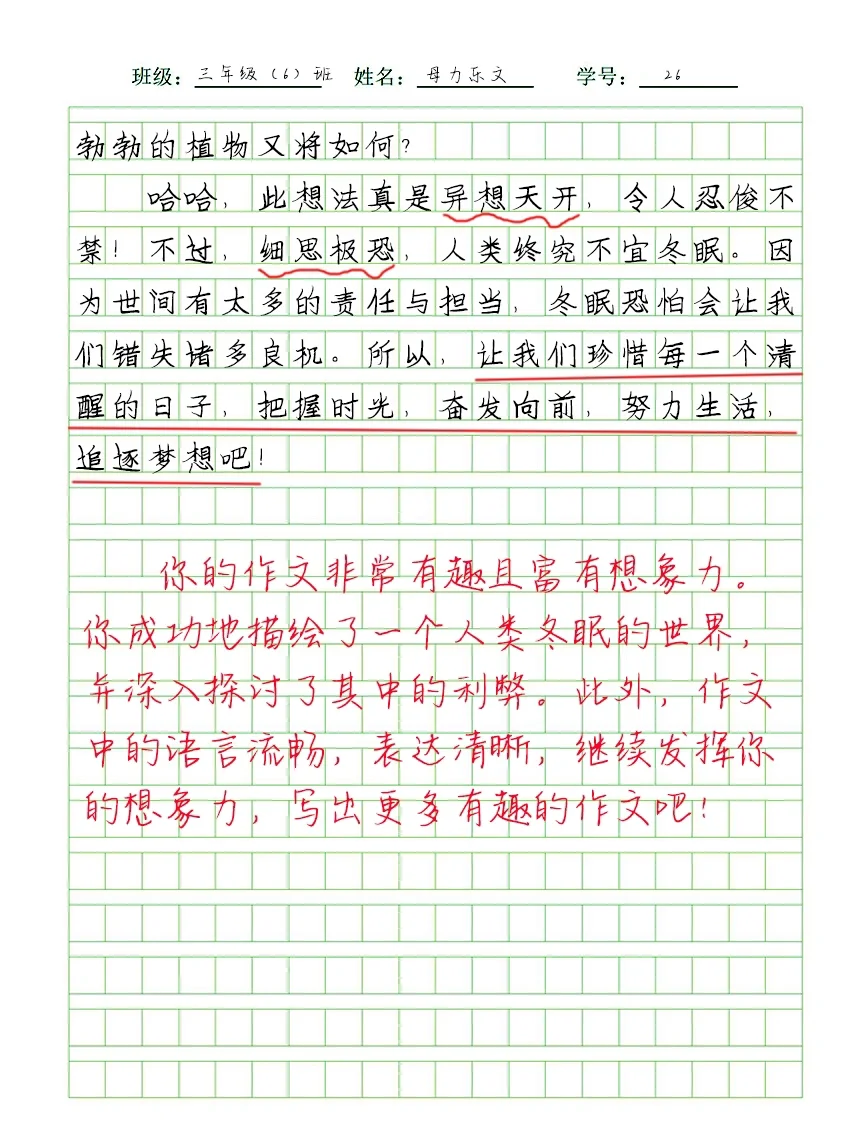 班级：三年级（6）班 姓名：母力乐文 学号：26
勃勃的植物又将如何？
哈哈，此想法真是异想天开，令人忍俊不
禁！不过，细思极恐，人类终究不宜冬眠。因
为世间有太多的责任与担当，冬眠恐怕会让我
们错失诸多良机。所以，让我们珍惜每一个清
醒的日子，把握时光，奋发向前，努力生活，
追逐梦想吧！
你的作文非常有趣且富有想象力。
你成功地描绘了一个人类冬眠的世界，
并深入探讨了其中的利弊。此外，作文
中的语言流畅，表达清晰，继续发挥你
的想象力，写出更多有趣的作文吧！